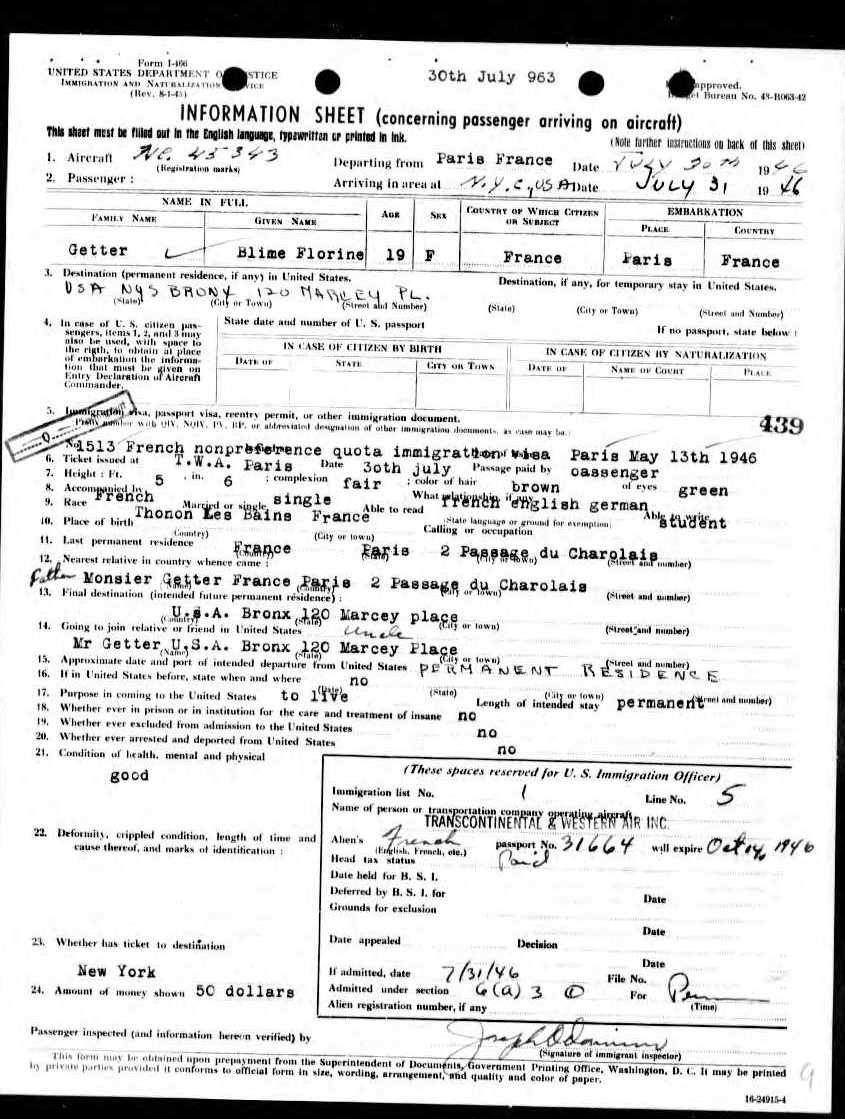 Form I-466
UNITED STATES DEPARTMENT O STICE
IMMIGRATION AND NATURALIZATION VICE
(Rev. 8-1-45)
30th July 963
approved.
et Bureau No. 43-R063-42
INFORMATION SHEET (concerning passenger arriving on aircraft)
This sheet must be filled out in the English language, typewritten or printed in ink.
(Note further instructions on back of this sheet)
1. Aircraft Nc. 45343 Departing from Paris France Date JULY 30th 1946
(Registration marks)
2. Passenger : Arriving in area at N.Y.C., USA Date JULY 31 1946
NAME IN FULL AGE SEX COUNTRY OF WHICH CITIZEN OR SUBJECT EMBARKATION
FAMILY NAME GIVEN NAME PLACE COUNTRY
Getter Blime Florine 19 F France Paris France
3. Destination (permanent residence, if any) in United States. Destination, if any, for temporary stay in United States.
USA NYS BRONX 120 MARCEY PL.
(State) (City or Town) (Street and Number) (State) (City or Town) (Street and Number)
4. In case of U. S. citizen passengers, items 1, 2, and 3 may also be used, with space to the rigth, to obtain at place of embarkation the information that must be given on Entry Declaration of Aircraft Commander.
State date and number of U. S. passport If no passport, state below :
IN CASE OF CITIZEN BY BIRTH IN CASE OF CITIZEN BY NATURALIZATION
DATE OF STATE CITY OR TOWN DATE OF NAME OF COURT PLACE
5. Immigration visa, passport visa, reentry permit, or other immigration document.
439
Prefix number with QIV, NQIV, PV, RP, or abbreviated designation of other immigration documents, as case may be.:
No 1513 French nonpreference quota immigration visa Paris May 13th 1946
6. Ticket issued at T.W.A. Paris Date 30th july Passage paid by oassenger
7. Height : Ft. 5 . in. 6 ; complexion fair ; color of hair brown of eyes green
8. Accompanied by What relationship, if any
9. Race French Married or single single Able to read french english german Able to write
10. Place of birth Thonon Les Bains France (State language or ground for exemption) Calling or occupation student
(Country) (City or town)
11. Last permanent residence France Paris 2 Passage du Charolais
(Country) (State) (City or town) (Street and number)
12. Nearest relative in country whence came :
Father Monsier Getter France Paris 2 Passage du Charolais
(Name) (Country) (City or town) (Street and number)
13. Final destination (intended future permanent residence) :
U.S.A. Bronx 120 Marcey place
(Country) (State) (City or town) (Street and number)
14. Going to join relative or friend in United States Uncle
Mr Getter U.S.A. Bronx 120 Marcey Place
(Name) (State) (City or town) (Street and number)
15. Approximate date and port of intended departure from United States PERMANENT RESIDENCE
16. If in United States before, state when and where no
(Date) (State) (City or town) (Street and number)
17. Purpose in coming to the United States to live Length of intended stay permanent
18. Whether ever in prison or in institution for the care and treatment of insane no
19. Whether ever excluded from admission to the United States no
20. Whether ever arrested and deported from United States no
21. Condition of health, mental and physical
good
22. Deformity, crippled condition, length of time and cause thereof, and marks of identification :
23. Whether has ticket to destination
New York
24. Amount of money shown 50 dollars
(These spaces reserved for U. S. Immigration Officer)
Immigration list No. 1 Line No. 5
Name of person or transportation company operating aircraft
TRANSCONTINENTAL & WESTERN AIR INC.
Alien's French passport No. 31664 will expire Oct 14, 1946
(English, French, etc.)
Head tax status Paid
Date held for B. S. I.
Deferred by B. S. I. for Date
Grounds for exclusion
Date
Date appealed Decision
Date
If admitted, date 7/31/46 File No.
Admitted under section 6(a) 3 For Perm
(Time)
Alien registration number, if any
Passenger inspected (and information hereon verified) by
(Signature of immigrant inspector)
This form may be obtained upon prepayment from the Superintendent of Documents, Government Printing Office, Washington, D. C. It may be printed
by private parties provided it conforms to official form in size, wording, arrangement, and quality and color of paper.
9
16-24915-4